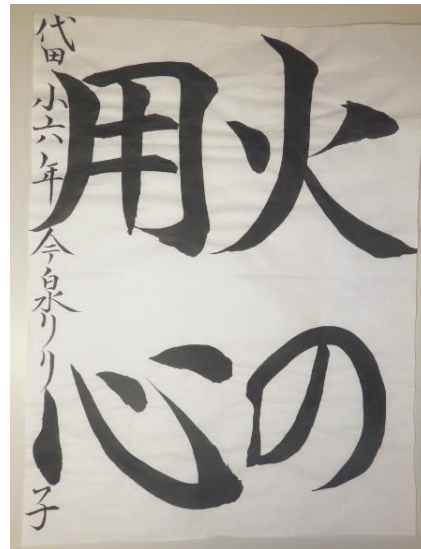 火の
用心
代田小六年 今泉りり子